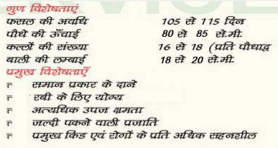 गुण विशेषताएँ
फसल की अवधि 105 से 115 दिन
पौधे की ऊँचाई 80 से 85 से.मी.
कल्लों की संख्या 16 से 18 (प्रति पौधा)
बाली की लम्बाई 18 से 20 से.मी.
प्रमुख विशेषताएँ
समान प्रकार के दाने
रबी के लिए योग्य
अत्यधिक उपज क्षमता
जल्दी पकने वाली प्रजाति
प्रमुख किड एवं रोगों के प्रति अधिक सहनशील